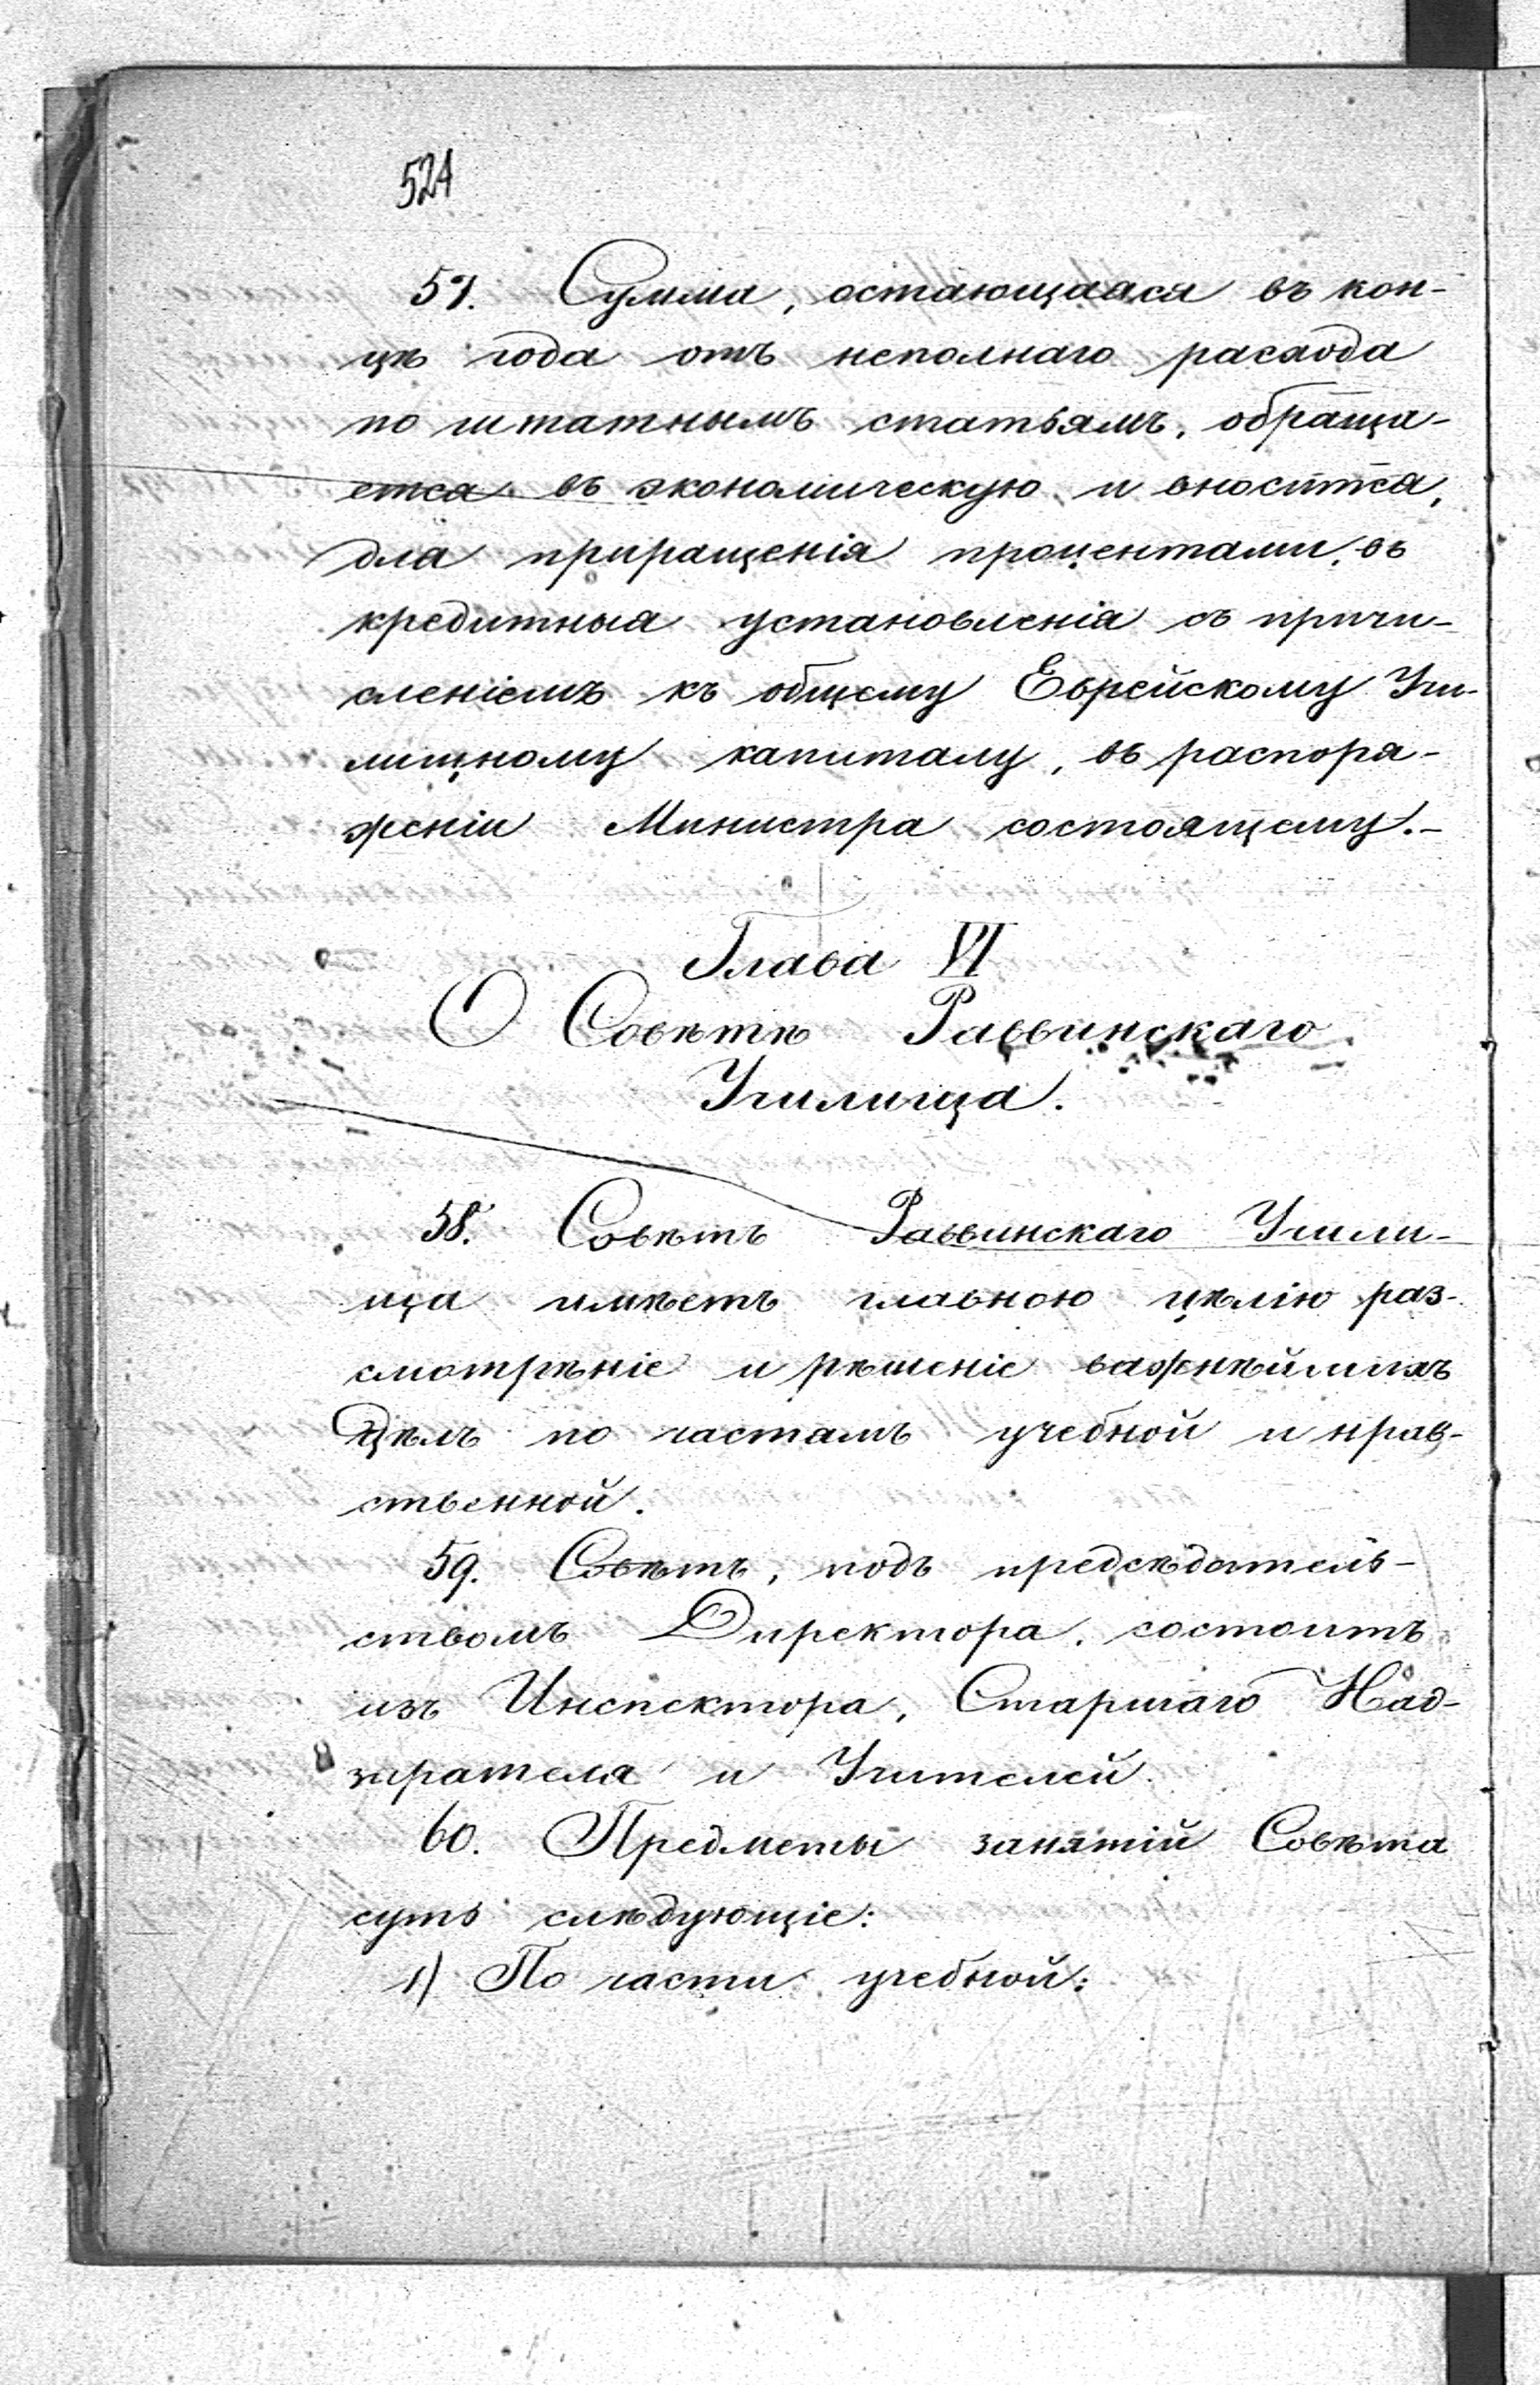 524
57. Сумма, остающаяся въ кон-
цѣ года отъ неполнаго расхода
по штатнымъ статьямъ, обраща-
ется въ экономическую и вносится,
для приращенія процентами, въ
кредитныя установленія съ причи-
сленіемъ къ общему Еврейскому Учи-
лищному капиталу, въ распоря-
женіи Министра состоящему.-
Глава VI
О Совѣтѣ Раввинскаго
Училища.
58. Совѣтъ Раввинскаго Учили-
ща имѣетъ главною цѣлію раз-
смотрѣніе и рѣшеніе важнѣйшихъ
дѣлъ по частямъ учебной и нрав-
ственной.
59. Совѣтъ, подъ предсѣдатель-
ствомъ Директора, состоитъ
изъ Инспектора, Старшаго Над-
зирателя и Учителей.
60. Предметы занятій Совѣта
суть слѣдующіе:
1) По части учебной: